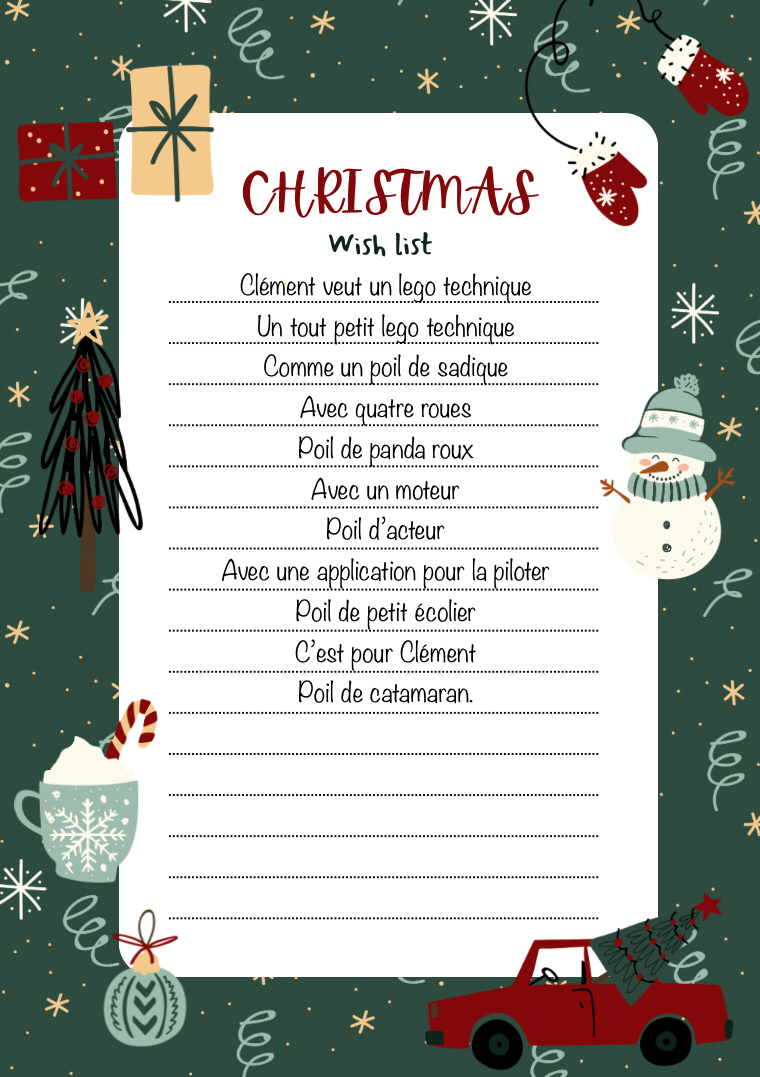 CHRISTMAS
Wish list
Clément veut un lego technique
Un tout petit lego technique
Comme un poil de sadique
Avec quatre roues
Poil de panda roux
Avec un moteur
Poil d'acteur
Avec une application pour la piloter
Poil de petit écolier
C'est pour Clément
Poil de catamaran.